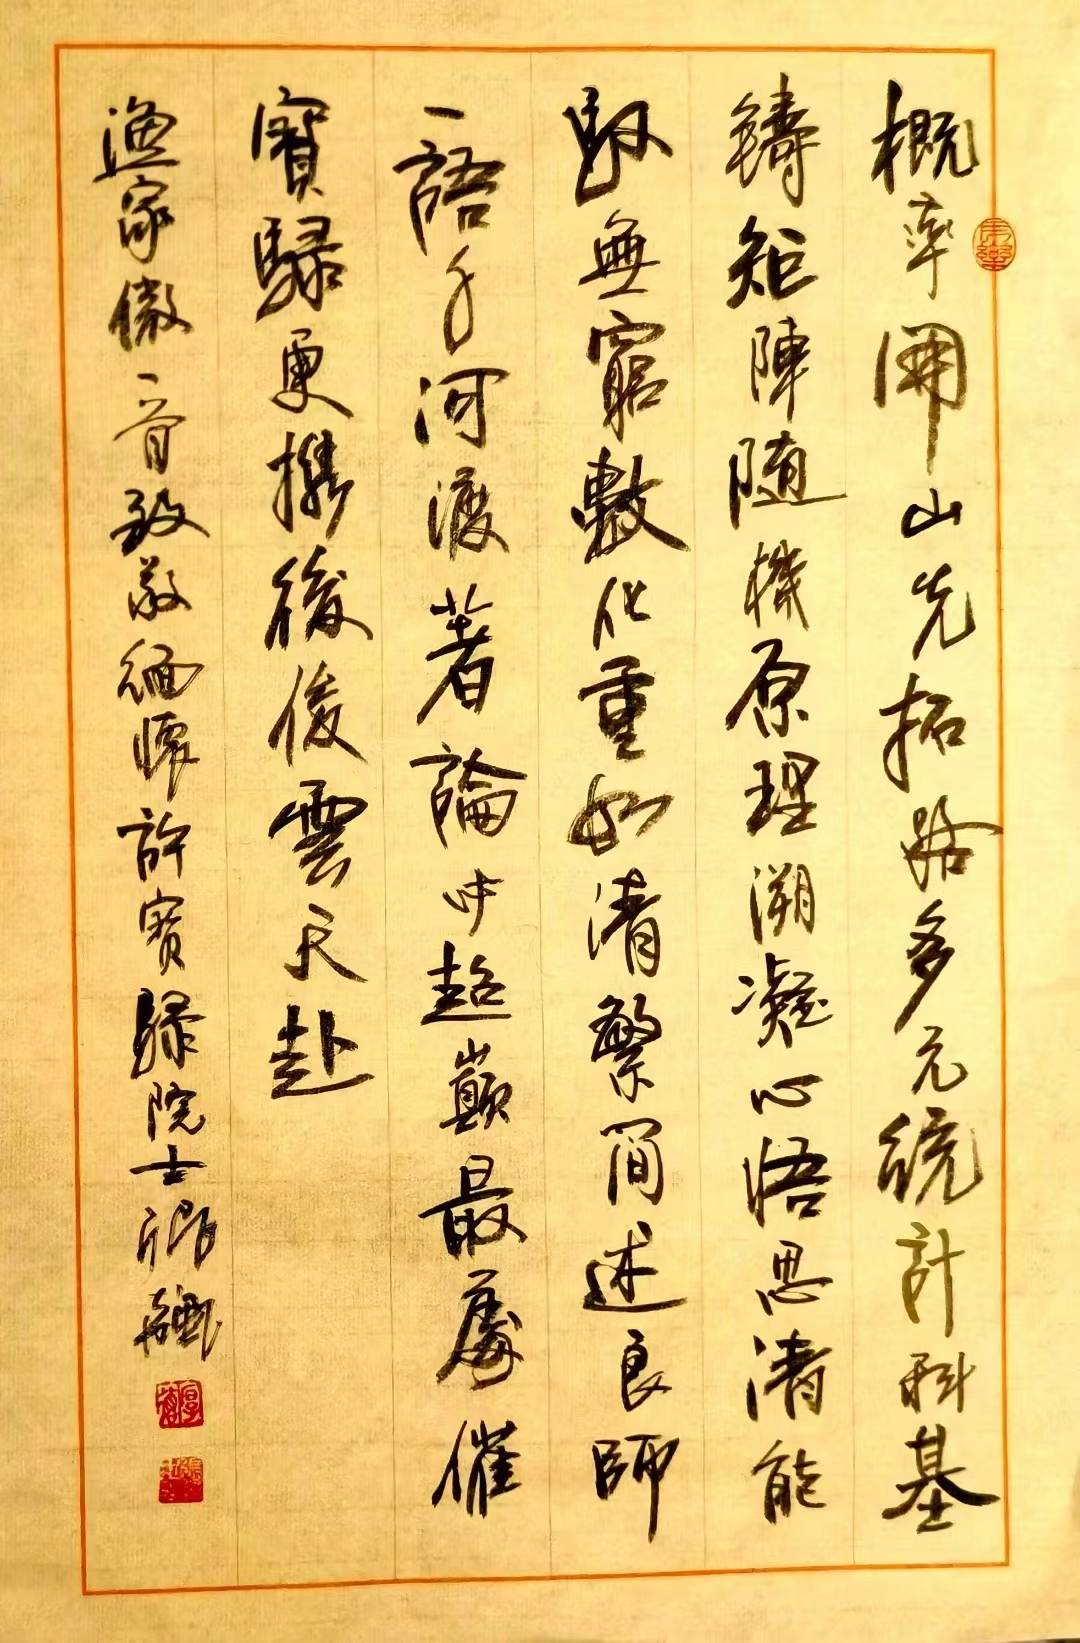 概率開山先拓路多元統計科基
鑄矩陣隨機原理溯凝心悟思濤能
馭無窮數化重如清繁簡述良師
一語千河渡著論呼超巔最處催
寶騄更攜後俊雲天赴
漁家傲一首致敬緬懷許寶騄院士